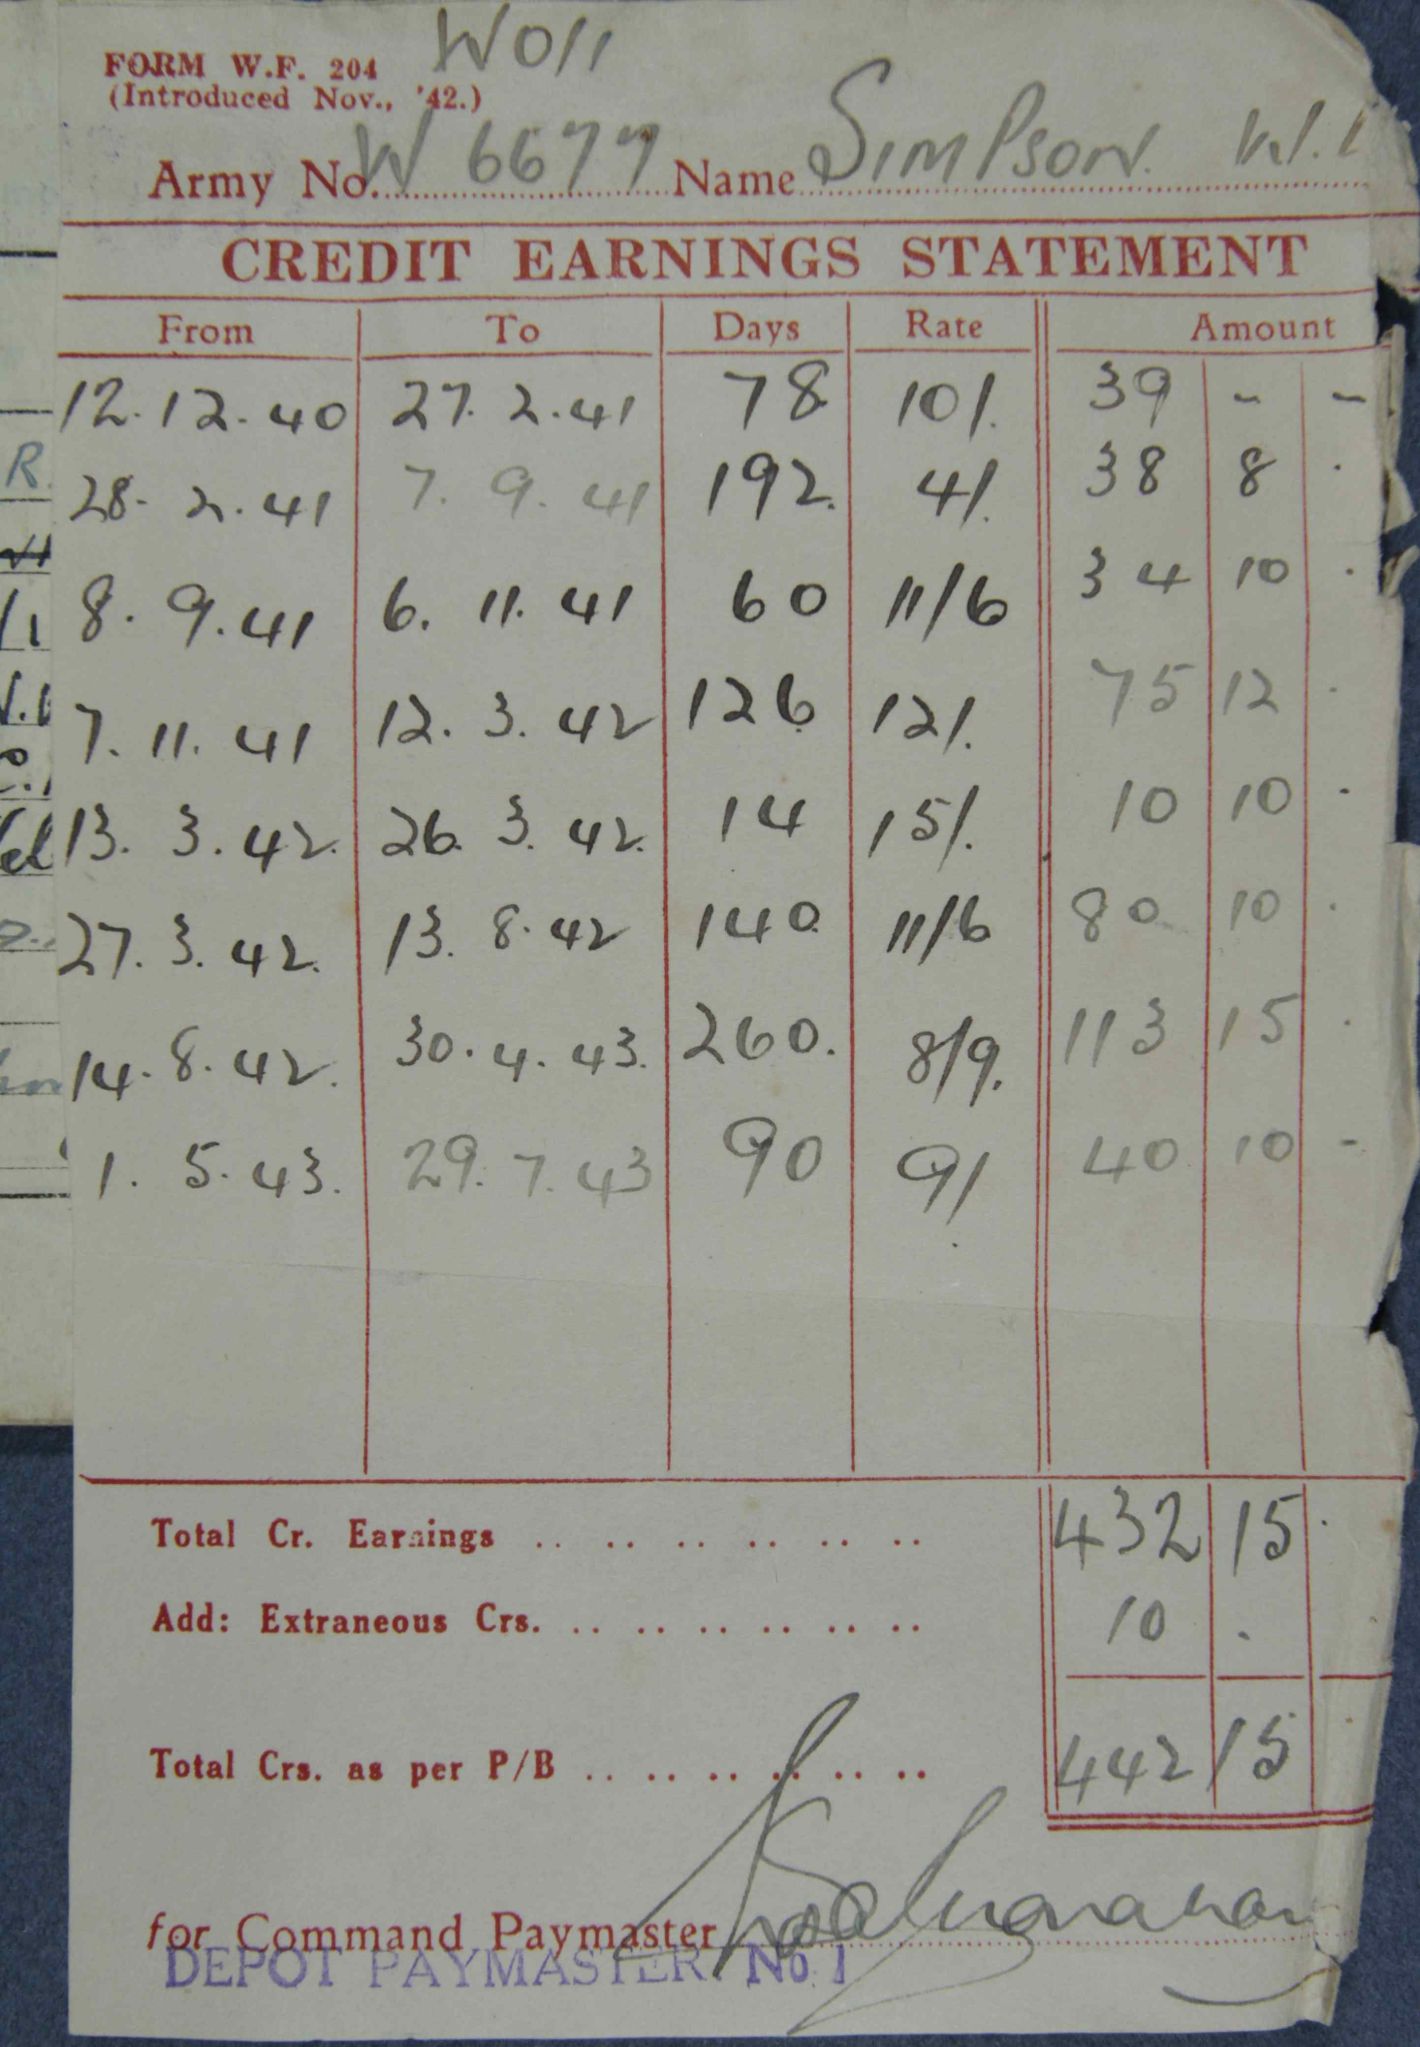 WOII
FORM W.F. 204
(Introduced Nov., '42.)
Army No. W 6677 Name SIMPSON. W.
CREDIT EARNINGS STATEMENT
From To Days Rate Amount
12.12.40 27.2.41 78 10/. 39 - -
28.2.41 7.9.41 192. 4/. 38 8 .
8.9.41 6.11.41 60 11/6 34 10 .
7.11.41 12.3.42 126 12/. 75 12 .
13.3.42. 26.3.42. 14 15/. 10 10 -
27.3.42. 13.8.42 140 11/6 80 10 .
14.8.42. 30.4.43. 260. 8/9. 113 15 .
1.5.43. 29.7.43 90 9/ 40 10 -
Total Cr. Earnings .. .. .. .. .. .. .. 432 15 .
Add: Extraneous Crs. .. .. .. .. .. .. 10 .
Total Crs. as per P/B .. .. .. .. .. .. .. 442 15 .
for Command Paymaster
DEPOT PAYMASTER No. 1